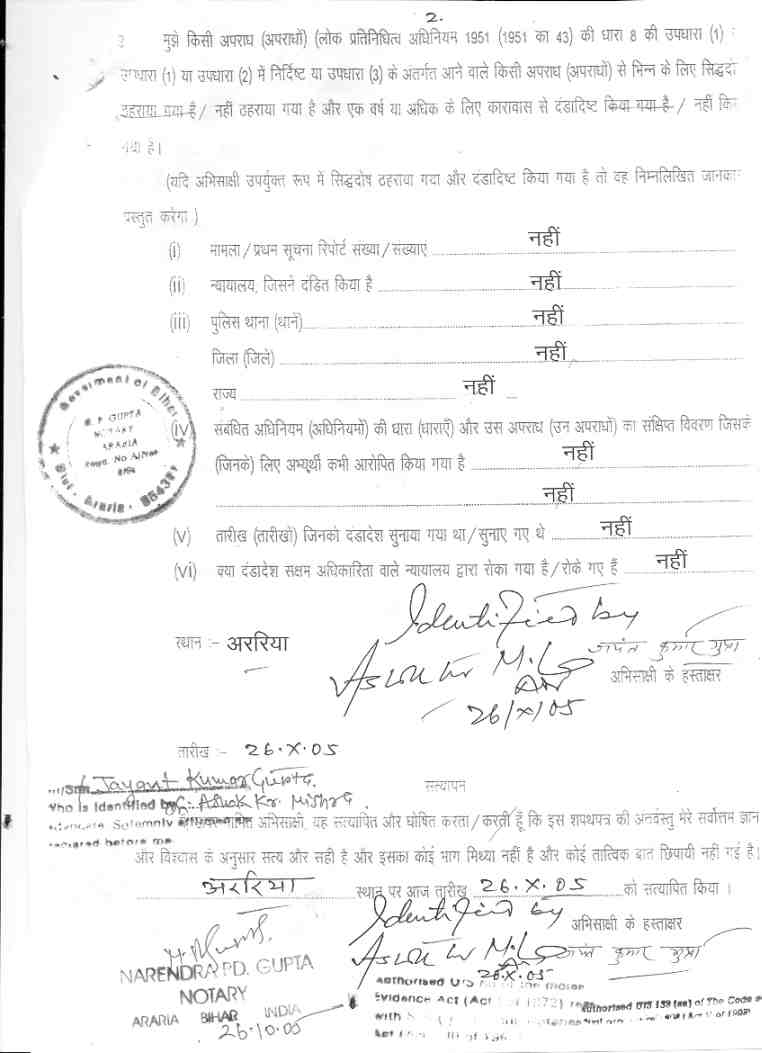 2.
3 मुझे किसी अपराध (अपराधों) (लोक प्रतिनिधित्व अधिनियम 1951 (1951 का 43) की धारा 8 की उपधारा (1)
उपधारा (1) या उपधारा (2) में निर्दिष्ट या उपधारा (3) के अंतर्गत आने वाले किसी अपराध (अपराधों) से भिन्न के लिए सिद्धदो
ठहराया गया है / नहीं ठहराया गया है और एक वर्ष या अधिक के लिए कारावास से दंडादिष्ट किया गया है / नहीं कि
गया है।
(यदि अभिसाक्षी उपर्युक्त रूप में सिद्धदोष ठहराया गया और दंडादिष्ट किया गया है तो वह निम्नलिखित जानका
प्रस्तुत करेगा )
(i) मामला / प्रथम सूचना रिपोर्ट संख्या / संख्याएं नहीं
(ii) न्यायालय, जिसने दंडित किया है नहीं
(iii) पुलिस थाना (थानें) नहीं
जिला (जिले) नहीं
राज्य नहीं
Government of Bihar
N. P. GUPTA
NOTARY
ARARIA
Regd. No
Dist. Araria
(iv) संबंधित अधिनियम (अधिनियमों) की धारा (धाराएँ) और उस अपराध (उन अपराधों) का संक्षिप्त विवरण जिसके
(जिनके) लिए अभ्यर्थी कभी आरोपित किया गया है नहीं
नहीं
(v) तारीख (तारीखों) जिनको दंडादेश सुनाया गया था / सुनाए गए थे नहीं
(vi) क्या दंडादेश सक्षम अधिकारिता वाले न्यायालय द्वारा रोका गया है / रोके गए हैं नहीं
Identified by
स्थान :- अररिया
जयंत कुमार गुप्ता
अभिसाक्षी के हस्ताक्षर
26/X/05
तारीख :- 26.X.05
Jayant Kumar Gupta.
सत्यापन
who is Identified by Ashok Kr. Mishra
Solemnly अभिसाक्षी, यह सत्यापित और घोषित करता / करती हूँ कि इस शपथपत्र की अन्तर्वस्तु मेरे सर्वोत्तम ज्ञान
declared before me
और विश्वास के अनुसार सत्य और सही है और इसका कोई भाग मिथ्या नहीं है और कोई तात्विक बात छिपायी नहीं गई है।
अररिया स्थान पर आज तारीख 26.X.05 को सत्यापित किया ।
Identified by अभिसाक्षी के हस्ताक्षर
जयंत कुमार गुप्ता
26.X.05
NARENDRA PD. GUPTA
NOTARY
ARARIA BIHAR INDIA
26.10.05
Authorised U/S of the Indian
Evidence Act (Act 1 of 1872)
Authorised U/S 139 (aa) of The Code
with